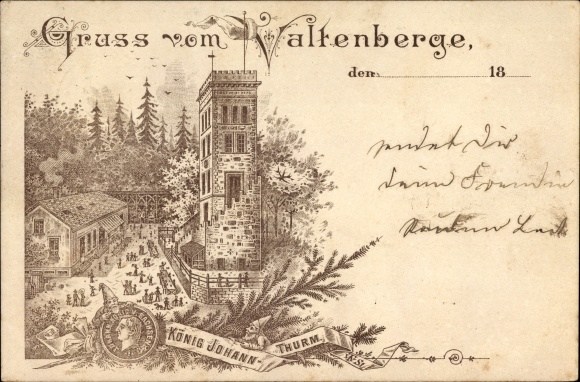 Gruss vom Valtenberge,
den 18
sendet Dir
deine Freundin
KÖNIG JOHANN-THURM.